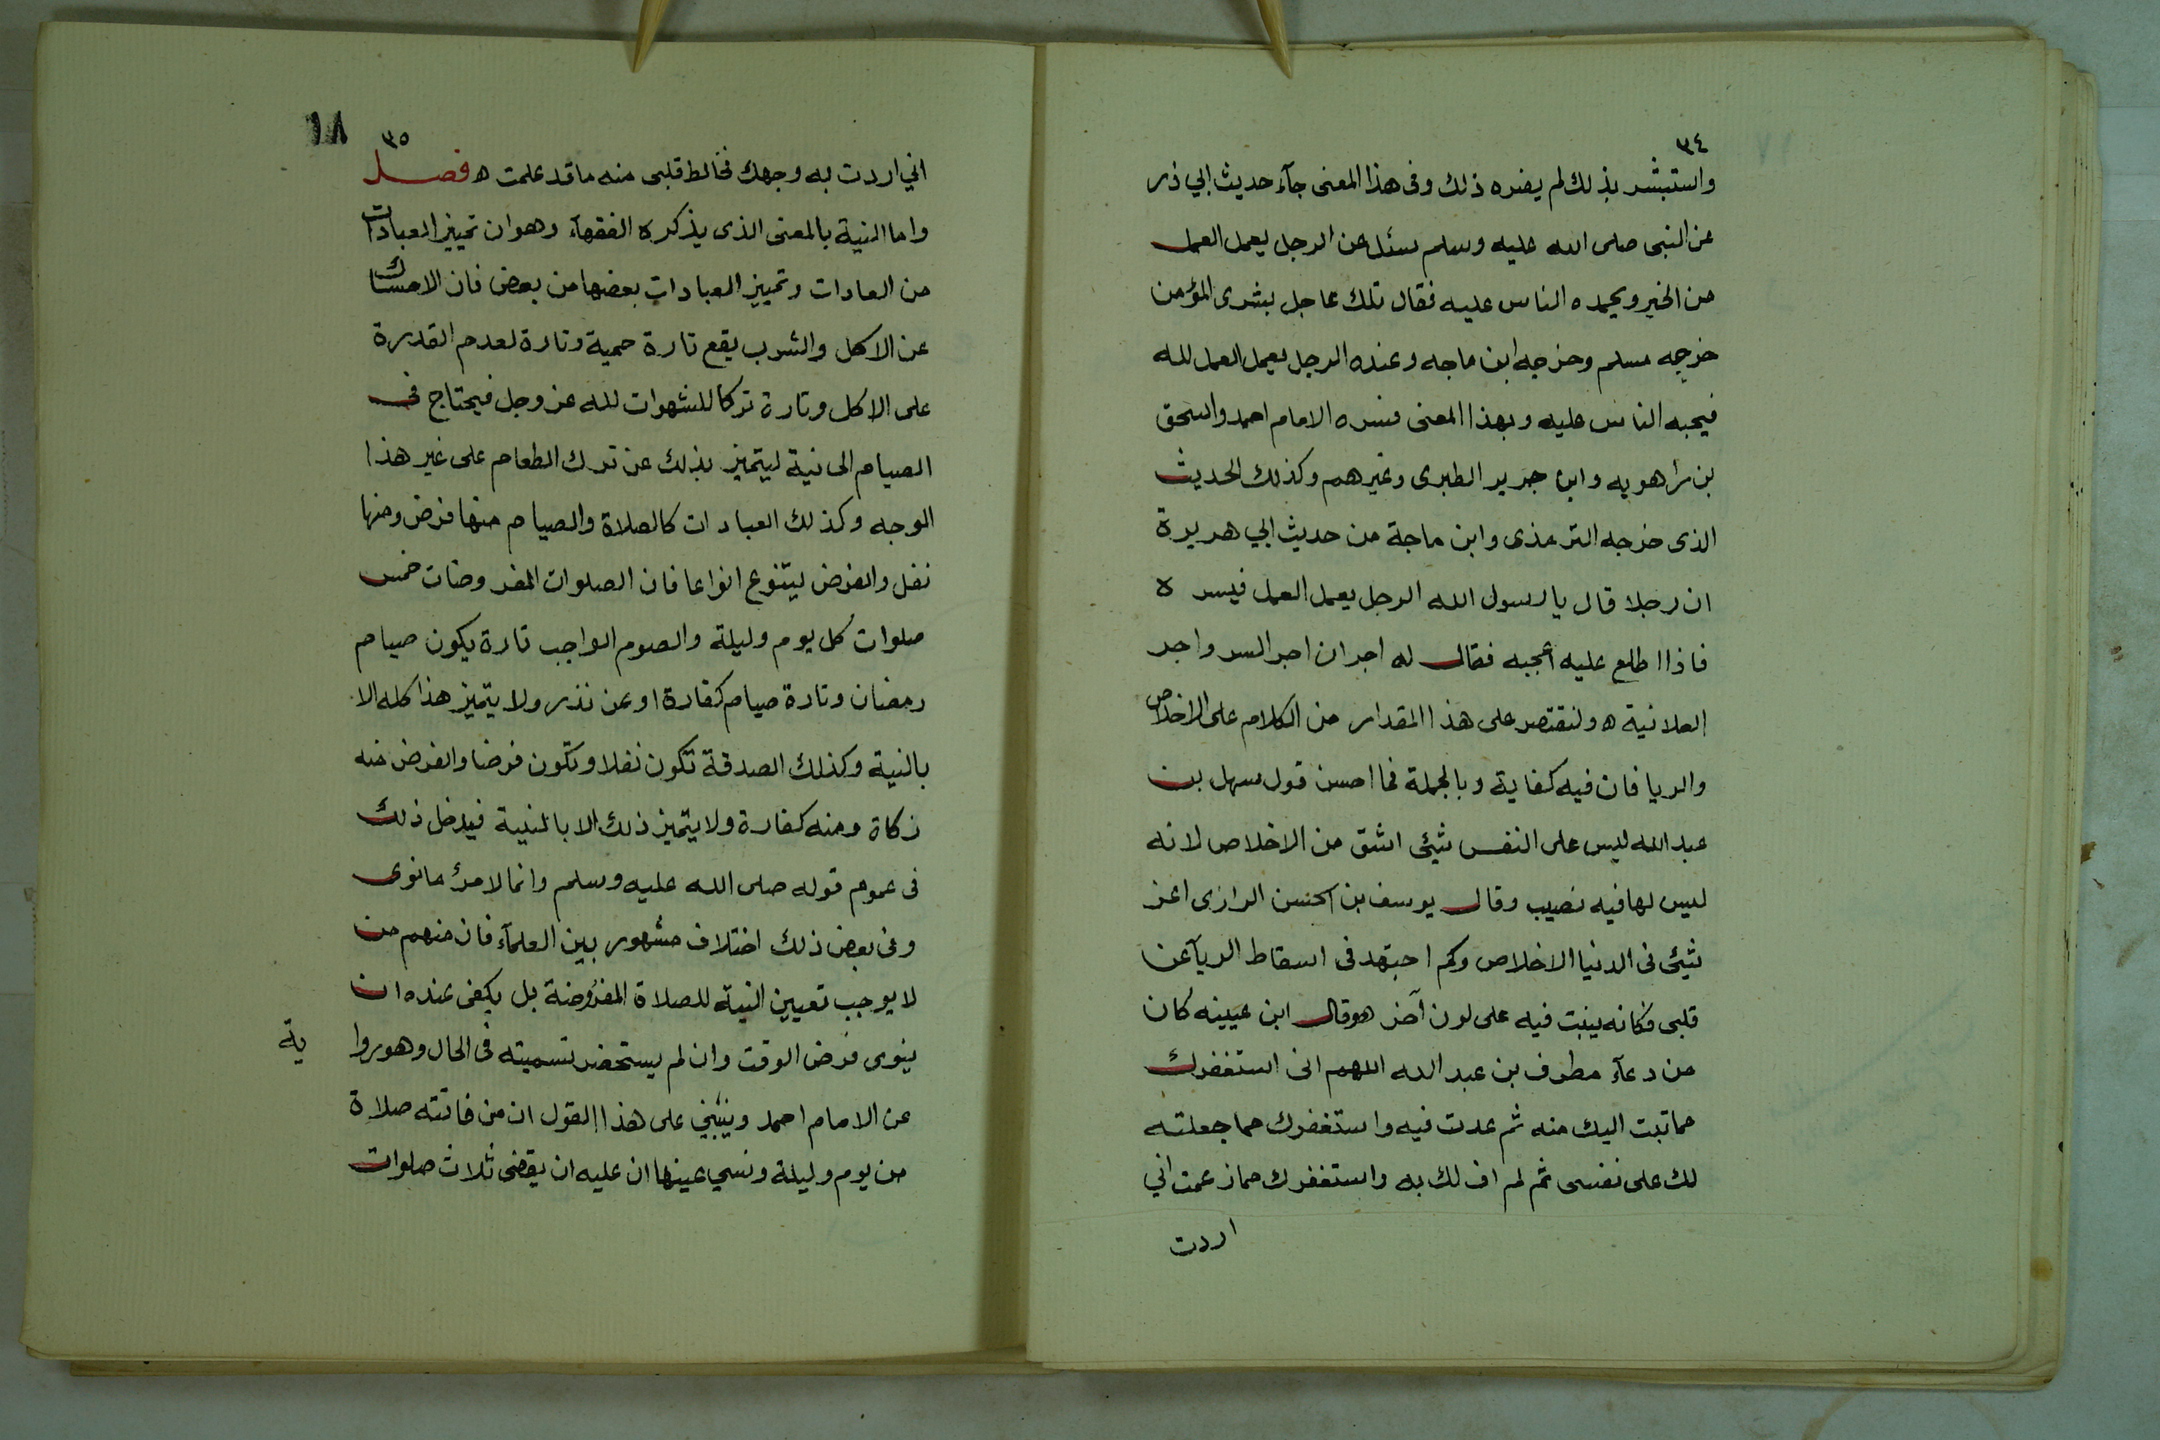 ٣٤
واستبشر بذلك لم يضره ذلك وفى هذا المعنى جآء حديث ابي ذر
عن النبى صلى الله عليه وسلم سئل عن الرجل يعمل العمل
من الخير ويحمده الناس عليه فقال تلك عاجل بشرى المؤمن
خرجه مسلم وخرجه ابن ماجه وعنده الرجل يعمل العمل لله
فيحبه الناس عليه وبهذا المعنى فسره الامام احمد واسحق
بن راهويه وابن جرير الطبرى وغيرهم وكذلك الحديث
الذى خرجه الترمذى وابن ماجة من حديث ابي هريرة
ان رجلا قال يا رسول الله الرجل يعمل العمل فيسره
فاذا اطلع عليه اعجبه فقال له اجران اجر السر واجر
العلانية ه ولنقتصر على هذا المقدار من الكلام على الاخلاص
والريا فان فيه كفاية وبالجملة فما احسن قول سهل بن
عبد الله ليس على النفس شيئ اشق من الاخلاص لانه
ليس لها فيه نصيب وقال يوسف بن الحسن الرازى اعز
شيئ فى الدنيا الاخلاص وكم اجتهد فى اسقاط الريآ عن
قلبى فكانه ينبت فيه على لون آخر ه وقال ابن عيينه كان
من دعآء مطرف بن عبد الله اللهم انى استغفرك
مما تبت اليك منه ثم عدت فيه واستغفرك مما جعلته
لك على نفسى ثم لم اف لك به واستغفرك مما زعمت اني
اردت
٣٥
١٨
اني اردت به وجهك فخالط قلبى منه ما قد علمت ه فصل
واما النية بالمعنى الذى يذكره الفقهآء وهو ان تمييز العبادات
من العادات وتمييز العبادات بعضها من بعض فان الامساك
عن الاكل والشرب يقع تارة حمية وتارة لعدم القدرة
على الاكل وتارة تركا للشهوات لله عز وجل فيحتاج فى
الصيام الى نية ليتميز بذلك عن ترك الطعام على غير هذا
الوجه وكذلك العبادات كالصلاة والصيام منها فرض ومنها
نفل والفرض يتنوع انواعا فان الصلوات المفروضات خمس
صلوات كل يوم وليلة والصوم الواجب تارة يكون صيام
رمضان وتارة صيام كفارة او عن نذر ولا يتميز هذا كله الا
بالنية وكذلك الصدقة تكون نفلا وتكون فرضا والفرض منه
زكاة ومنه كفارة ولا يتميز ذلك الا بالنية فيدخل ذلك
فى عموم قوله صلى الله عليه وسلم وانما لامرئ ما نوى
وفى بعض ذلك اختلاف مشهور بين العلمآء فان منهم من
لا يوجب تعيين النية للصلاة المفروضة بل يكفى عنده ان
ينوى فرض الوقت وان لم يستحضر تسميته فى الحال وهو رواية
عن الامام احمد وينبني على هذا القول ان من فاتته صلاة
من يوم وليلة ونسي عينها ان عليه ان يقضى ثلاث صلوات